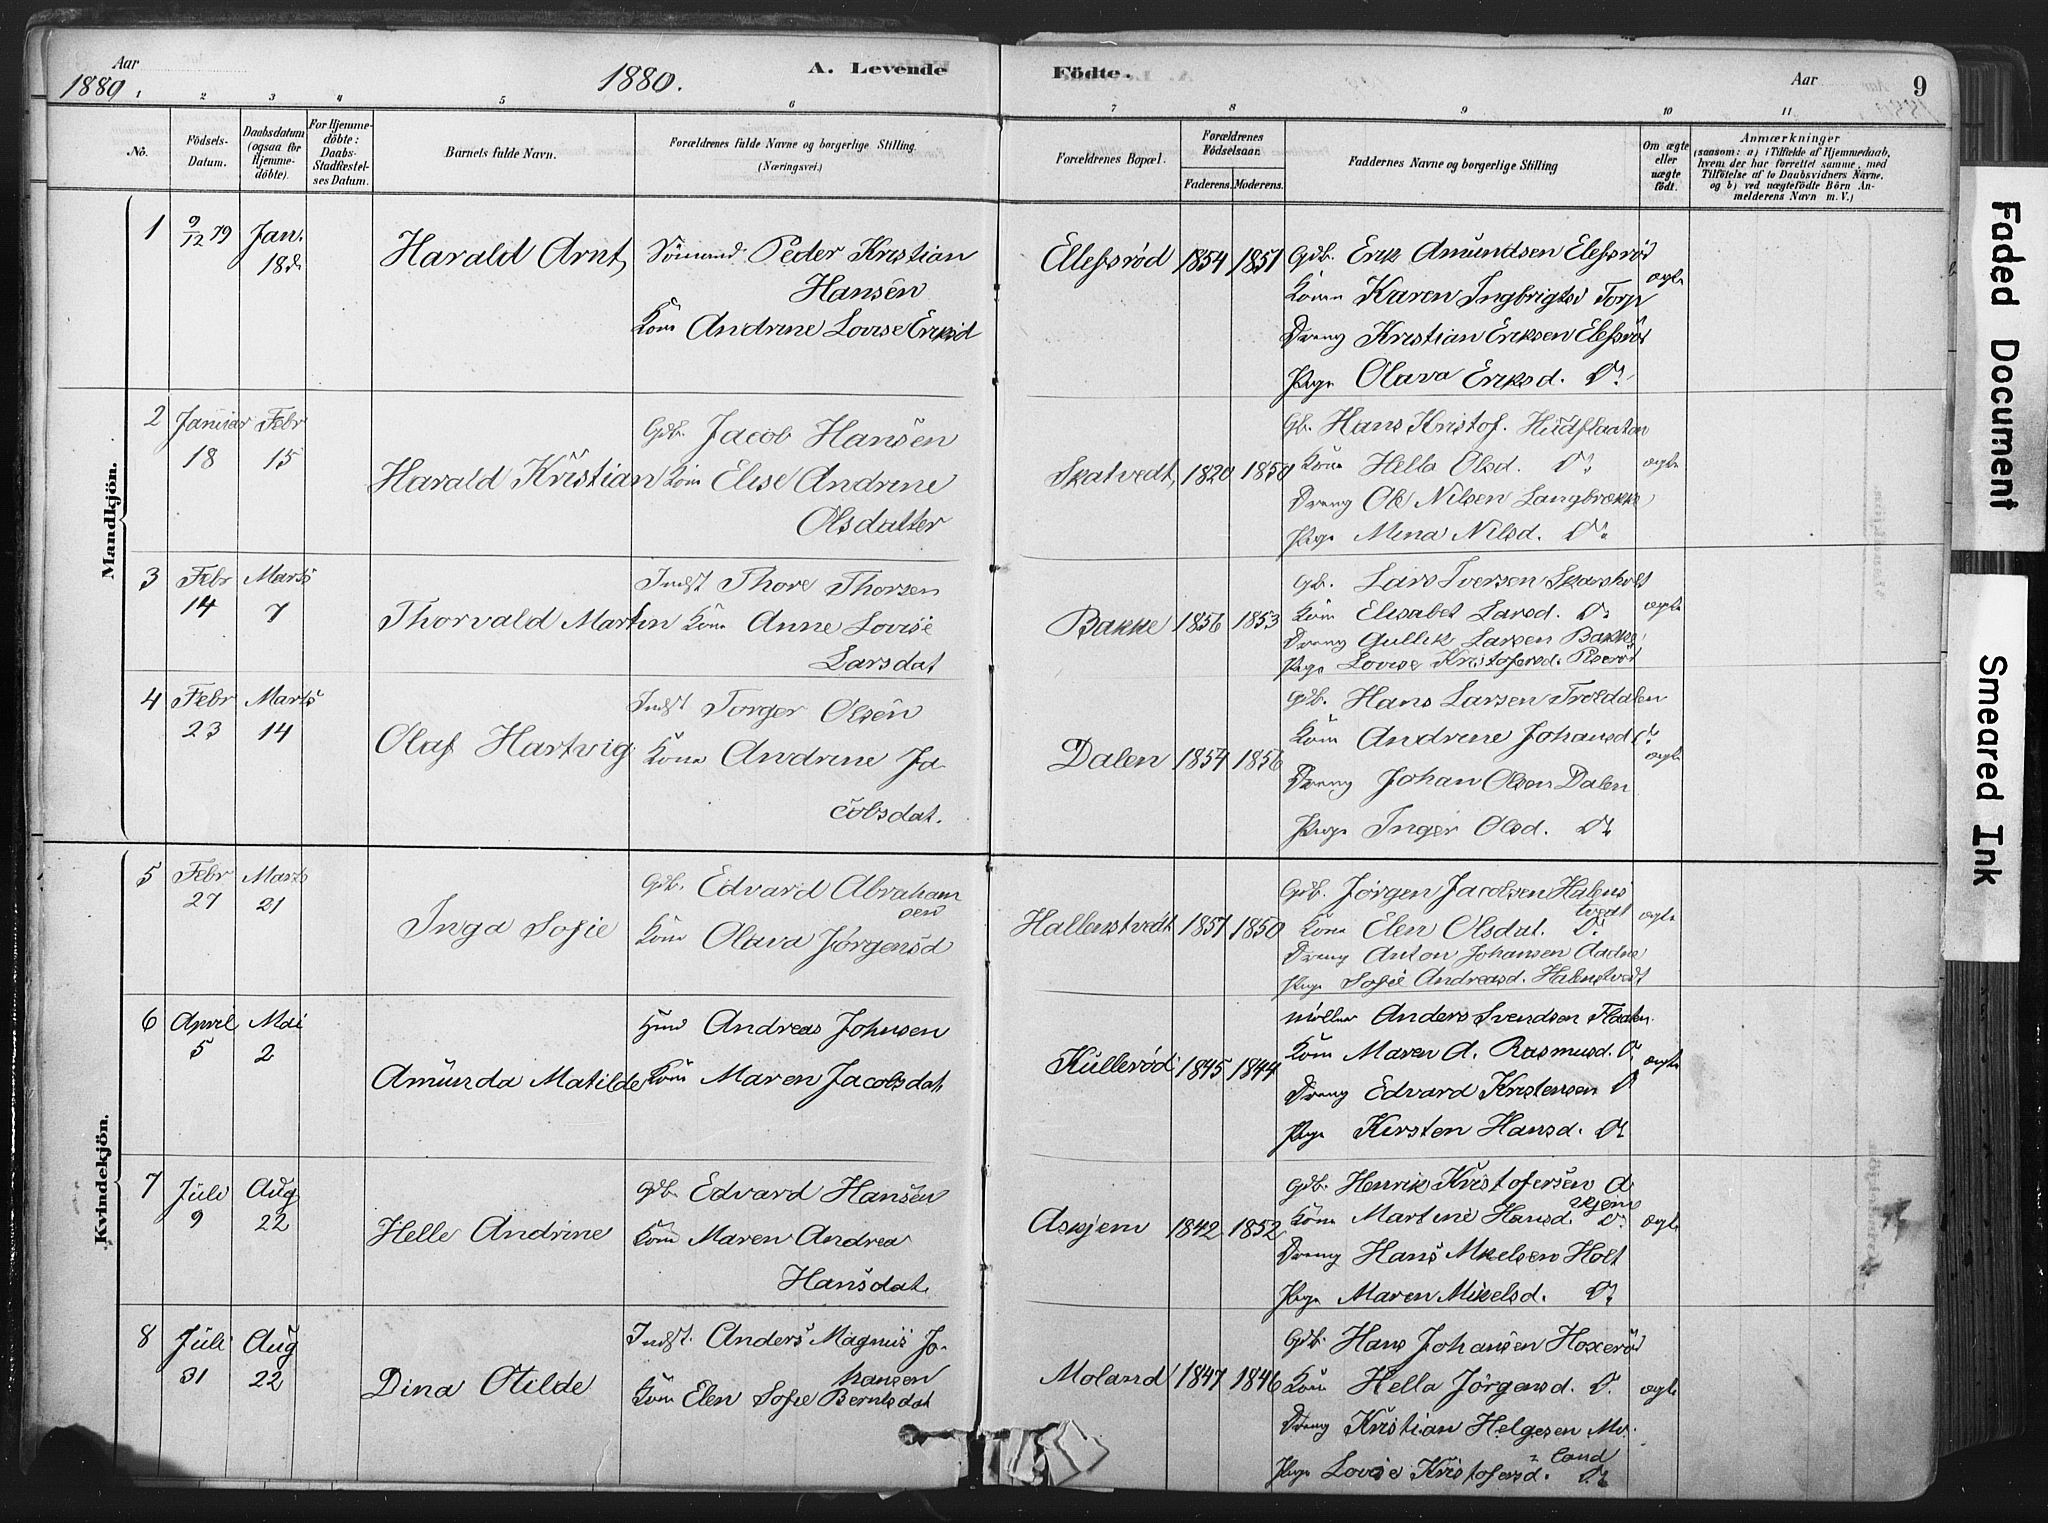 Aar
1880
1880.
A. Levende
Födte.
Aar
9
1
2
3
4
5
6
7
8
9
10
11
No.
Födsels-
Datum.
Daabsdatum
(ogsaa for
Hjemme-
döbte).
For Hjemme-
döbte:
Daabs-
Stadfæstel-
ses Datum.
Barnets fulde Navn.
Forældrenes fulde Navne og borgerlige Stilling.
(Næringsvei.)
Forældrenes Bopæl.
Forældrenes
Födselsaar.
Faderens.
Moderens.
Faddernes Navne og borgerlige Stilling
Om ægte
eller
uægte
födt.
Anmærkninger
(saasom: a) i Tilfælde af Hjemmedaab,
hvem der har forrettet samme, med
Tilföielse af to Daabsvidners Navne.
og b) ved uægtefödte Börn An-
melderens Navn m. V.)
Mandkjön.
1
9/12 79
Jan.
18de
Harald Arnt
Sömand Peder Kristian
Hansen
Kone Andrine Lovise Eriksd
Ellefsrød
1854
1851
Gdb. Erik Amundsen Elefsrød
Kone Karen Ingbrigtsd Torp
Dreng Kristian Eriksen Elefsrød
Pige Olava Eriksd. Do
ægte
2
Januar
18
Febr
15
Harald Kristian
Gdb. Jacob Hansen
Kone Elise Andrine
Olsdatter
Skatvedt
1820
1850
Gb. Hans Kristof. Hudflaaten
Kone Hella Olsd. Do
Dreng Ole Nilsen Langbrække
Pige Mina Nilsd. Do
ægte
3
Febr
14
Marts
7
Thorvald Martin
Indst Thore Thorsen
Kone Anne Lovise
Larsdat
Bakke
1856
1853
Gb. Lars Iversen Skarsholt
Kone Elisabet Larsd. Do
Dreng Gullik Larsen Bakke
Pige Lovise Kristofersd.
ægte
4
Febr
23
Marts
14
Olaf Hartvig
Indst Torger Olsen
Kone Andrine Ja
cobsdat.
Dalen
1854
1856
Gdb. Hans Larsen Troldalen
Kone Andrine Johansd Do
Dreng Johan Olsen Dalen
Pige Inger Olsd. Do
ægte
Kvindekjön.
5
Febr
27
Marts
21
Inga Sofie
Gdb. Edvard Abraham
sen
Kone Olava Jørgensd
Hallenstvedt
1851
1850
Gdb. Jørgen Jacobsen Halens
tvedt
Kone Elen Olsdat. Do
Dreng Anton Johansen Aadne
Pige Sofie Andreasd. Halenstvedt
ægte
6
April
5
Mai
2
Amunda Matilde
Husd Andreas Johnsen
Kone Maren Jacobsdat
Kullerød
1845
1844
Møller Anders Svendsen Flaaten
Kone Maren A. Rasmusd. Do
Dreng Edvard Kristensen Do
Pige Kirsten Hansd. Do
ægte
7
Juli
9
Aug
22
Helle Andrine
Gdb. Edvard Hansen
Kone Maren Andrea
Hansdat.
Askjem
1842
1852
Gdb. Henrik Kristofersen A
skjem
Kone Martine Hansd. Do
Dreng Hans Mikelsen Holt
Pige Maren Mikelsd. Do
ægte
8
Juli
31
Aug
22
Dina Otilde
Indst. Anders Magnus Jo-
hansen
Kone Elen Sofie Berntsdat
Moland
1847
1846
Gdb. Hans Johansen Hoxerød
Kone Hella Jørgensd. Do
Dreng Kristian Helgesen Mo-
land
Pige Lovise Kristofersd. Do
ægte
Faded Document
Smeared Ink